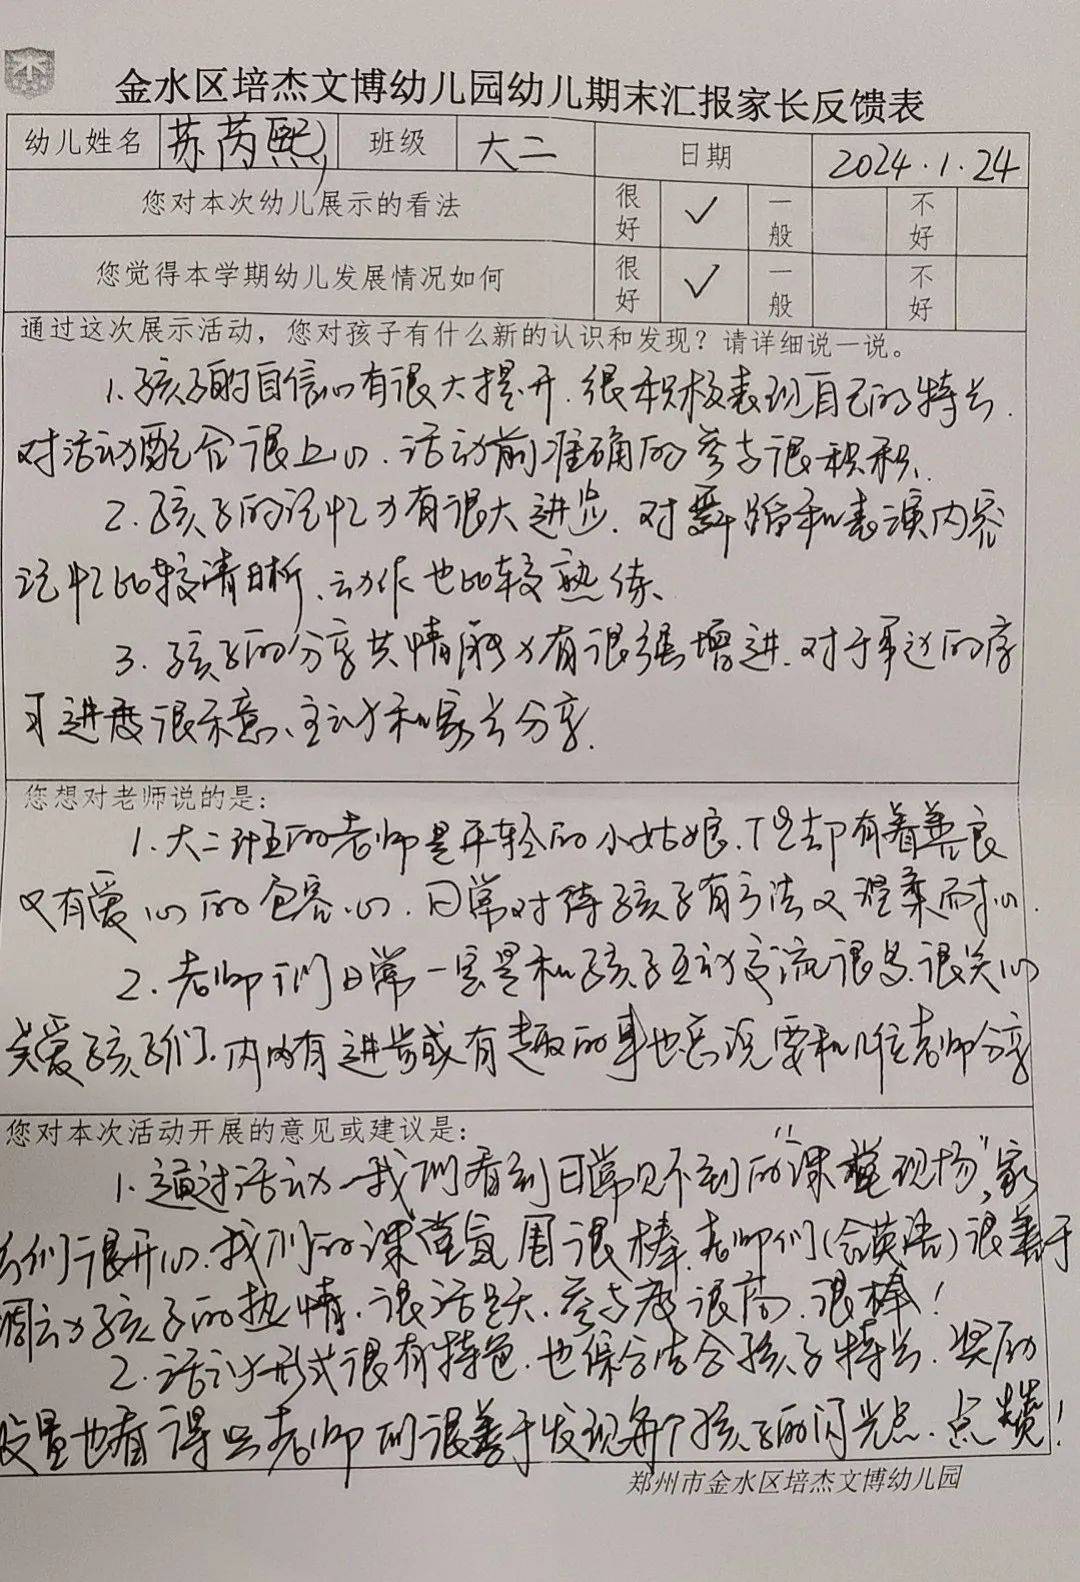 金水区培杰文博幼儿园幼儿期末汇报家长反馈表
幼儿姓名 苏芮熙 班级 大二 日期 2024.1.24
您对本次幼儿展示的看法 很好 ✓ 一般 不好
您觉得本学期幼儿发展情况如何 很好 ✓ 一般 不好
通过这次展示活动，您对孩子有什么新的认识和发现？请详细说一说。
1.孩子的自信心有很大提升.很积极表现自己的特长.
对活动配合很上心.活动前准确的参与很积积.
2.孩子的记忆力有很大进步.对舞蹈和表演内容
记忆比较清晰、动作也比较熟练、
3.孩子的分享共情能力有很强增进.对于
习进度很示意、主动和家长分享.
您想对老师说的是：
1.大二班的老师是年轻的小姑娘.但却有着善良
又有爱心的包容心.日常对待孩子有方法又温柔耐心.
2.老师们日常一定是和孩子互动交流很多.很关心
关爱孩子们.内内有进步或有趣的事也会说要和几位老师分享
您对本次活动开展的意见或建议是：
1.通过活动我们看到日常见不到的“课堂现场”，家
长们很开心.我们的课堂氛围很棒.老师们(含英语)很善于
调动孩子的热情.很活跃.参与度很高.很棒！
2.活动形式很有特色.也结合孩子特长.奖励
设置也看得出老师们很善于发现每个孩子的闪光点.点赞！
郑州市金水区培杰文博幼儿园